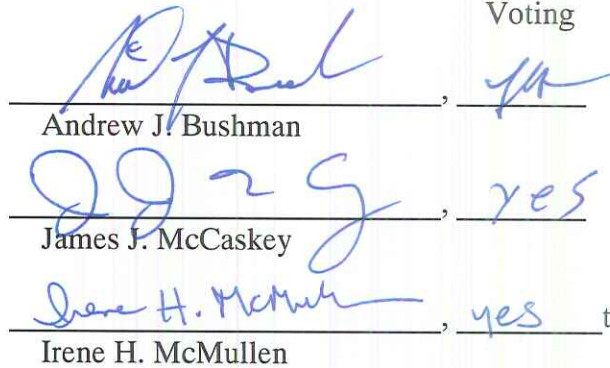 Voting
,
Andrew J. Bushman
, yes
James J. McCaskey
Irene H. McMullen, yes t
Irene H. McMullen